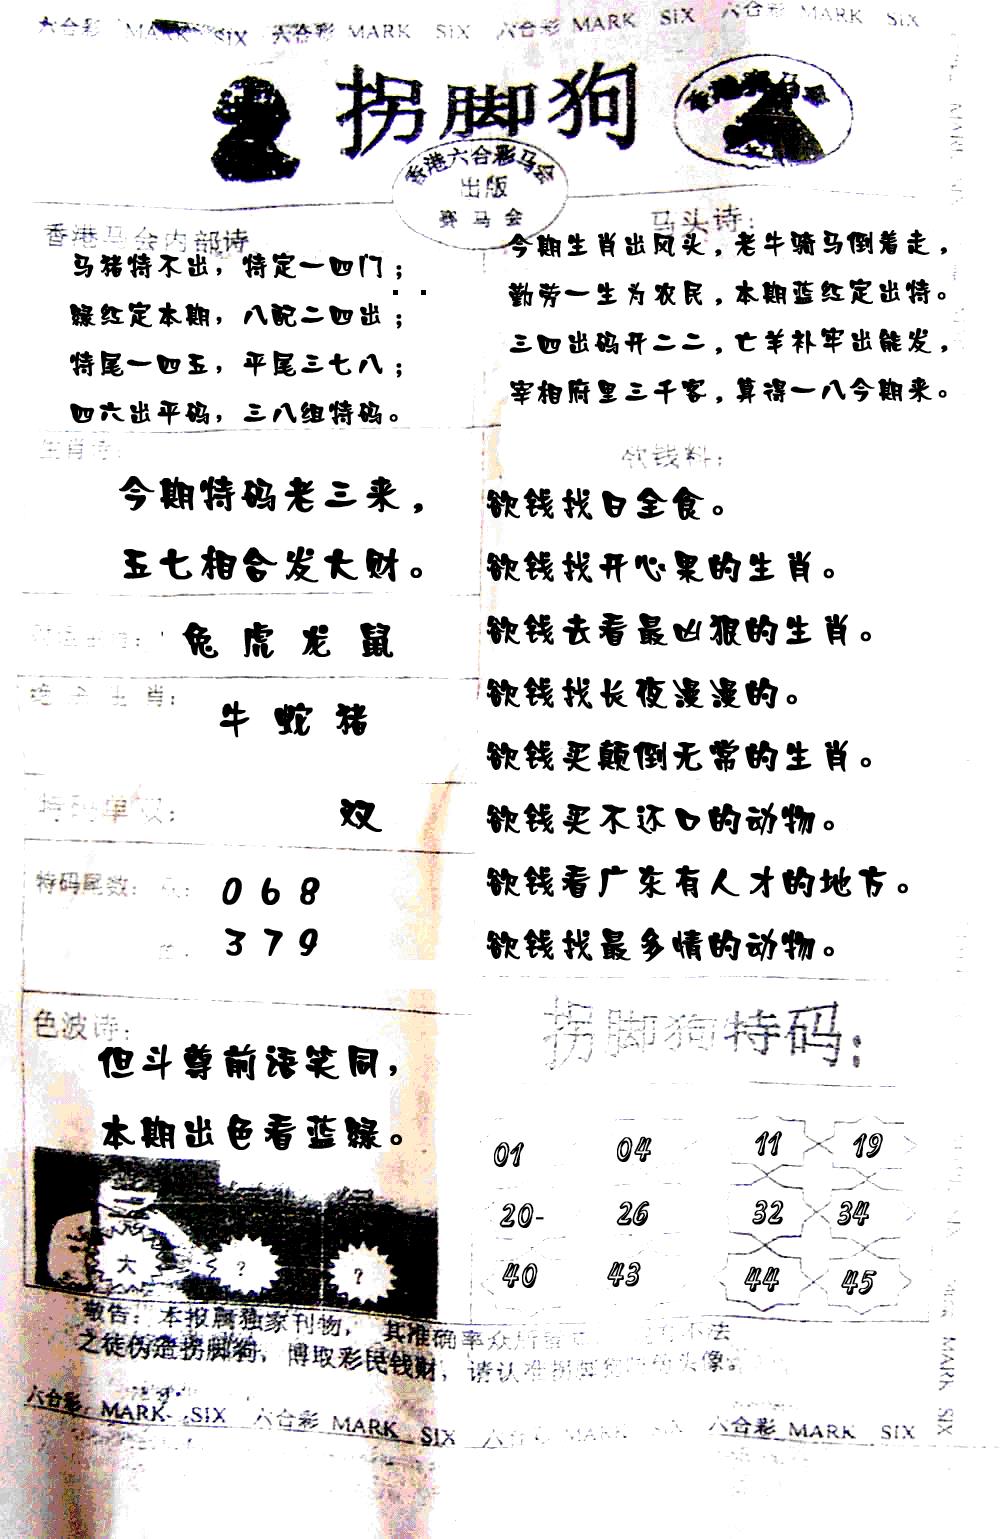 六合彩 MARK SIX 六合彩 MARK SIX 六合彩 MARK SIX 六合彩 MARK SIX
拐脚狗
香港六合彩马会
出版
赛马会
香港马会内部诗
马猪特不出，特定一四门；
绿红定本期，八配二四出；
特尾一四五，平尾三七八；
四六出平码，三八组特码。
马头诗：
今期生肖出风头，老牛骑马倒着走，
勤劳一生为农民，本期蓝红定出特。
三四出码开二二，亡羊补牢出能发，
宰相府里三千客，算得一八今期来。
生肖诗：
今期特码老三来，
五七相合发大财。
兔 虎 龙 鼠
生肖：
牛 蛇 猪
特码单双：
双
特码尾数：
0 6 8
3 7 9
欲钱料：
欲钱找日全食。
欲钱找开心果的生肖。
欲钱去看最凶狠的生肖。
欲钱找长夜漫漫的。
欲钱买颠倒无常的生肖。
欲钱买不还口的动物。
欲钱看广东有人才的地方。
欲钱找最多情的动物。
色波诗：
但斗尊前语笑同，
本期出色看蓝绿。
大 ？ ？
拐脚狗特码：
01 04 11 19
20- 26 32 34
40 43 44 45
敬告：本报属独家刊物，其准确率众所 不法
之徒伪造拐脚狗，博取彩民钱财，请认准拐脚狗 头像
六合彩 MARK SIX 六合彩 MARK SIX 六合彩 MARK SIX 六合彩 MARK SIX
MARK SIX